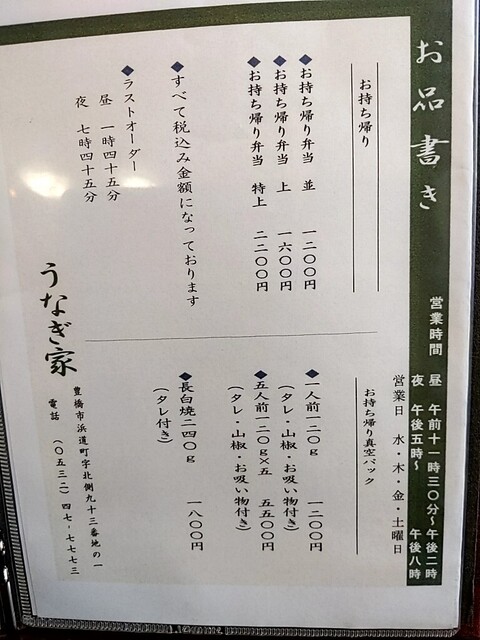 お品書き
営業時間　昼　午前十一時三〇分～午後二時
夜　午後五時～　午後八時
営業日　水・木・金・土曜日
お持ち帰り
◆お持ち帰り弁当　並　一二〇〇円
◆お持ち帰り弁当　上　一六〇〇円
◆お持ち帰り弁当　特上　二二〇〇円
◆すべて税込み金額になっております
◆ラストオーダー
昼　一時四十五分
夜　七時四十五分
お持ち帰り真空パック
◆一人前一二〇g　一二〇〇円
（タレ・山椒・お吸い物付き）
◆五人前一二〇g×五　五五〇〇円
（タレ・山椒・お吸い物付き）
◆長白焼二四〇g　一八〇〇円
（タレ付き）
うなぎ家
豊橋市浜道町字北側九十三番地の一
電話　（〇五三二）四七-七七七三